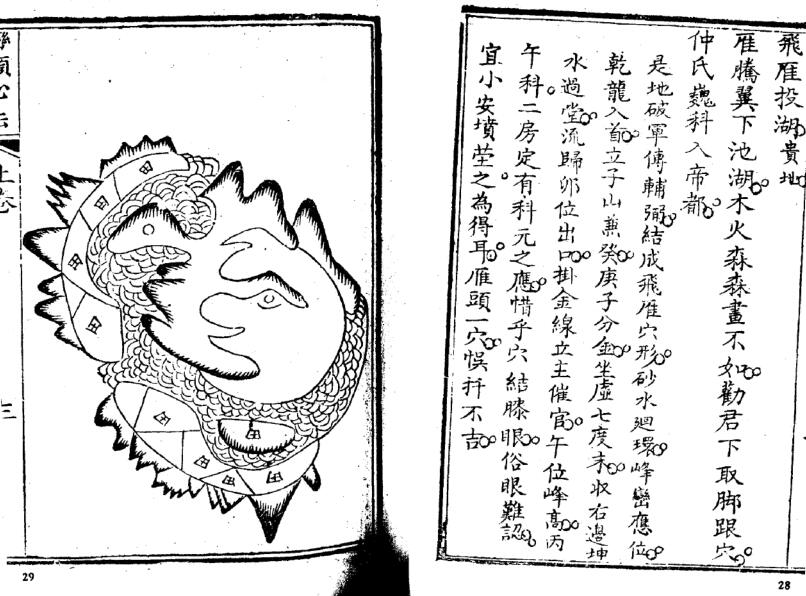 飛雁投湖貴地
雁騰翼下池湖木火森森畫不如勸君下取脚跟穴
仲氏巍科入帝都
是地破軍傳輔弼結成飛雁穴形砂水廻環峰巒應位
乾龍入首立子山兼癸庚子分金坐虛七度末收右邊坤
水過堂流歸卯位出口掛金線立主催官午位峰高丙
午科二房定有科元之應惜乎穴結膝眼俗眼難認
宜小安墳塋之為得耳雁頭一穴悞扦不吉
28
上卷
田
田
田
田
田
田
田
田
田
29